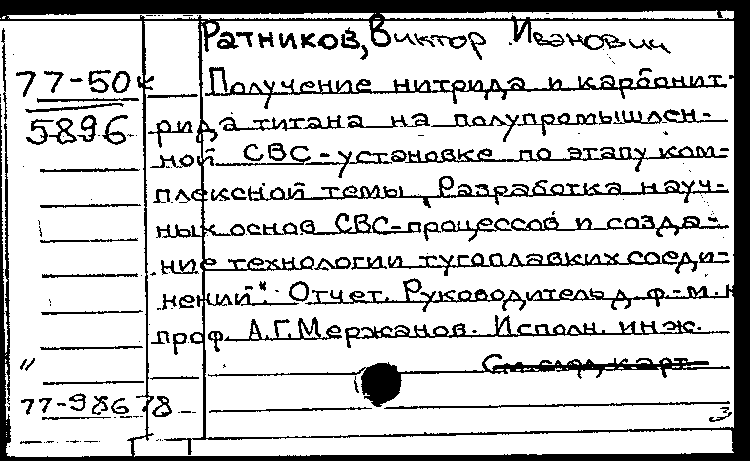 Ратников, Виктор Иванович
77-50к Получение нитрида и карбонит-
5896 рида титана на полупромышлен-
ной СВС-установке по этапу ком-
плексной темы „Разработка науч-
ных основ СВС-процессов и созда-
ние технологии тугоплавких соеди-
нений". Отчет. Руководитель д.ф.-м.н
проф. А.Г.Мержанов. Исполн. инж.
" См. след. карт.
77-98678
3